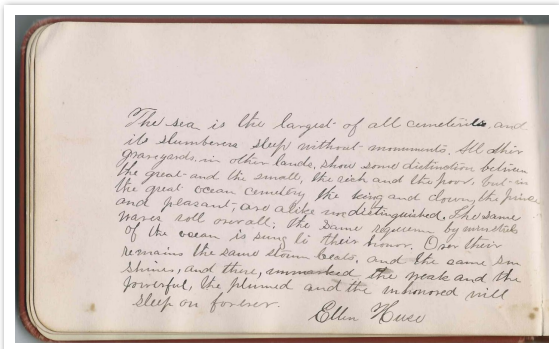 The sea is the largest of all cemeteries, and
its slumberers sleep without monuments. All other
graveyards, in other lands, show some distinction between
the great and the small, the rich and the poor, but in
the great ocean cemetery the king and clown, the prince
and peasant, are alike undistinguished. The same
waves roll over all; the same requiem by minstrels
of the ocean is sung to their honor. Over their
remains the same storm beats, and the same sun
shines, and there, unmarked the weak and the
powerful, the plumed and the unhonored will
sleep on forever.
Ellen